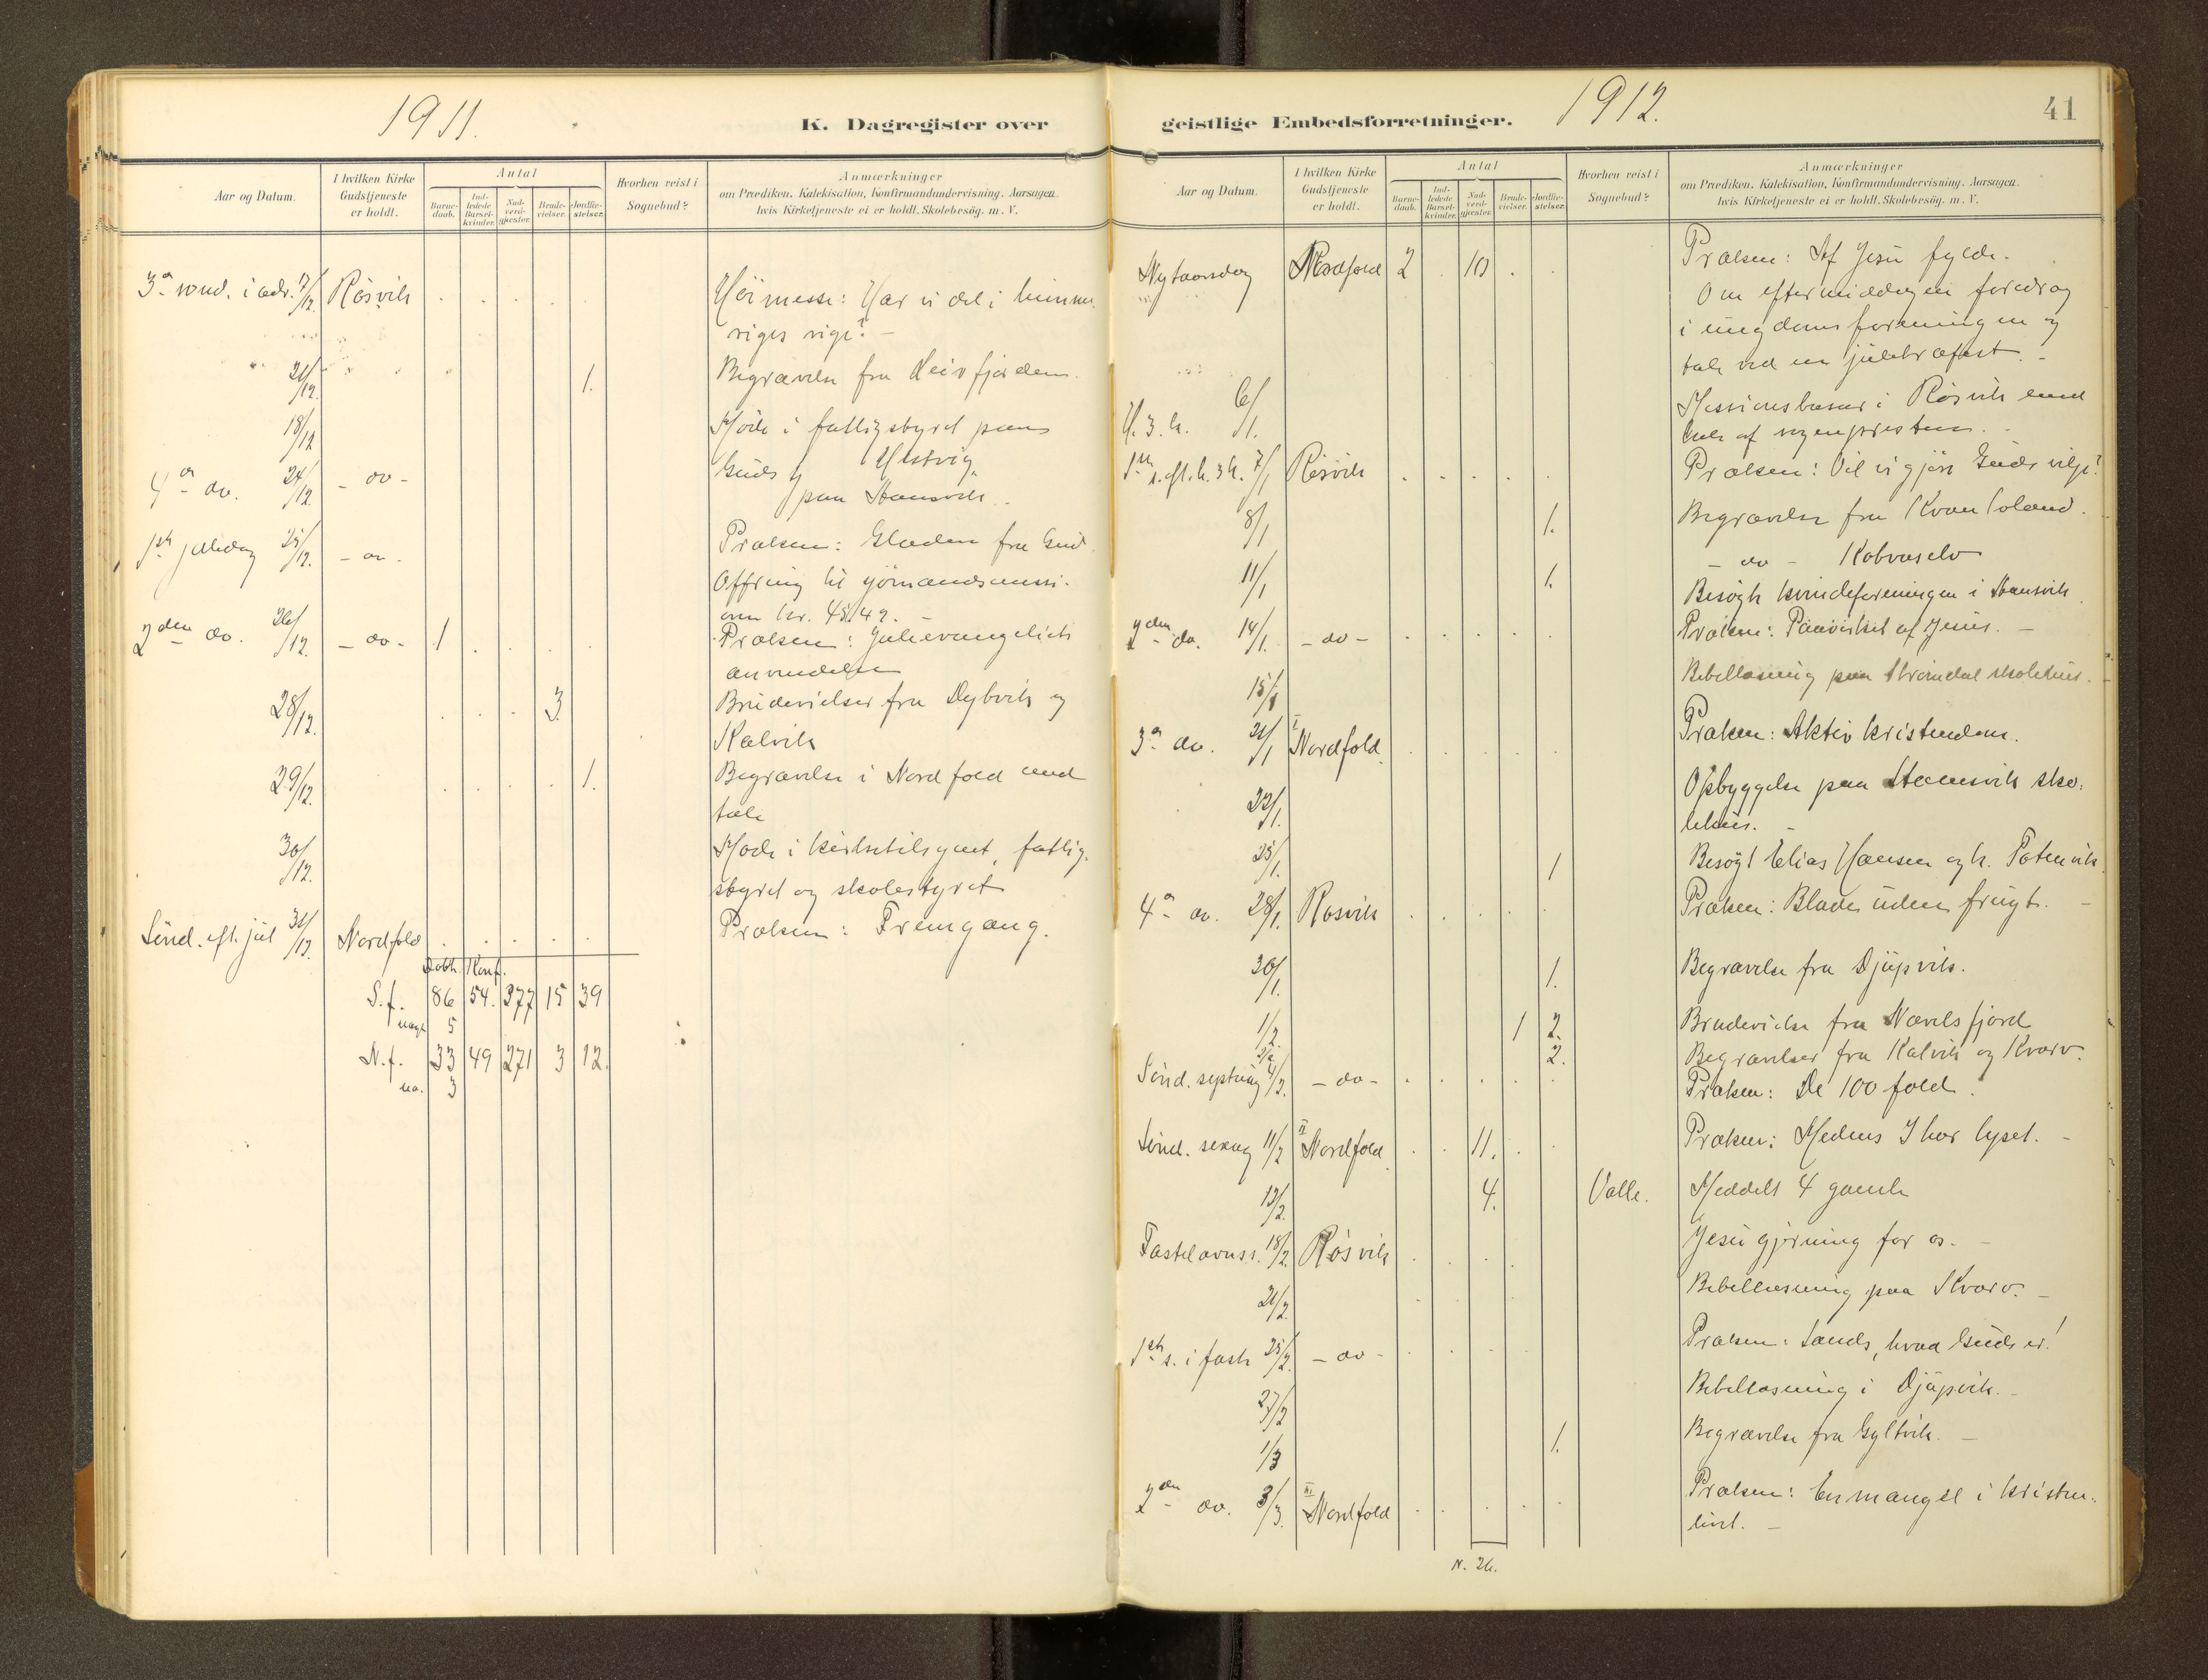 1911.
K. Dagregister over
Aar og Datum.
I hvilken Kirke Gudstjeneste er holdt.
Antal
Barne-daab.
Ind-ledede Barsel-kvinder.
Nad-verd-gjester.
Brude-vielser.
Jordfæ-stelser.
Hvorhen reist i Sognebud?
Anmærkninger
om Prædiken. Katekisation, Konfirmandundervisning. Aarsagen.
hvis Kirketjeneste ei er holdt. Skolebesög. m. V.
3. sönd. i adv. 17/12. Rösvik Höimesse: Har vi del i himme-
riges rige? –
21/12. 1. Begravelse fra
18/12 Möde i fattigstyret paa
4. do. 24/12 – do – Guds
paa
1ste juledag 25/12. – do. Præken: Glæden fra Gud.
Offring til sjömandsmissi-
onen kr. 45.42. –
2den do. 26/12. – do – 1 . . . . Præken: Juleevangeliets
anvendelse
28/12. . . . 3. Brudevielser fra Dybvik og
Kalvik
29/12. . . . . 1. Begravelse i Nordfold med
tale
30/12. Möde i kirketilsynet, fattig-
styret og skolestyret
Sönd. eft. jul 31/12. Nordfold . . . . . Præken: Fremgang.
Döbte Konf.
S.f. 86 54. 377 15 39
5
N.f. 33 49 271 3 12.
3
geistlige Embedsforretninger.
1912.
41
Aar og Datum.
I hvilken Kirke Gudstjeneste er holdt.
Antal
Barne-daab.
Ind-ledede Barsel-kvinder.
Nad-verd-gjester.
Brude-vielser.
Jordfæ-stelser.
Hvorhen reist i Sognebud?
Anmærkninger
om Prædiken. Katekisation, Konfirmandundervisning. Aarsagen.
hvis Kirketjeneste ei er holdt. Skolebesög. m. V.
Nytaarsdag Nordfold 2 . 10 . . Præken: Af Jesu fylde.
Om eftermiddagen foredrag
i ungdomsforeningen og
tale ved en juletræfest. –
H. 3 k. 6/1. Missionsbasar i Rösvik med
tale af sognepresten. –
1ste s. eft. h. 3 k. 7/1 Rösvik . . . . . Præken: Vil vi gjöre Guds vilje?
8/1 1. Begravelse fra
11/1 1. – do – Kobvaselv
Besögte kvindeforeningen i
2den do. 14/1. – do – . . . . . Præken: Paavirket af Jesus. –
15/1 Bibellæsning paa skolehus. –
3. do. 21/1 I Nordfold . . . . . Præken: Aktiv kristendom.
22/1. Opbyggelse paa sko-
lehus. –
25/1. 1 Besögt Elias Hansen
4. do. 28/1. Rösvik . . . . . Præken: Blade uden frugt. –
30/1. 1. Begravelse fra Djupvik.
1/2. 1 2. Brudevielse fra Nævelsfjord
2. Begravelser fra Kalvik og Kvarv.
Sönd. septuag 4/2. – do – . . . . . Præken: De 100 fold.
Sönd. sexag 11/2 II Nordfold . . 11. . . Præken: Medens I har lyset. –
13/2. 4. Valle. Meddelt 4 gamle
Fastelavnss. 18/2. Rösvik . . . . Jesu gjerning for os. –
21/2. Bibellæsning paa Kvarv. –
1ste s. i faste 25/2. – do – . . . Præken: Sands, hvad Guds er!
27/2 Bibellæsning i Djupvik. –
1/3 1. Begravelse fra Gyltvik. –
2den do. 3/3. III Nordfold . . . . . Præken: En mangel i kristen-
livet. –
N. 26.